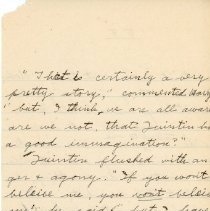 "That is certainly a very
pretty story," commented Mary
"but, I think we are all aware
are we not, that Quintin ha
a good unmagination?"
Quintin flushed with an
ger & agony. "If you won't
beleive me, you won't beleive
me" he said, but I have